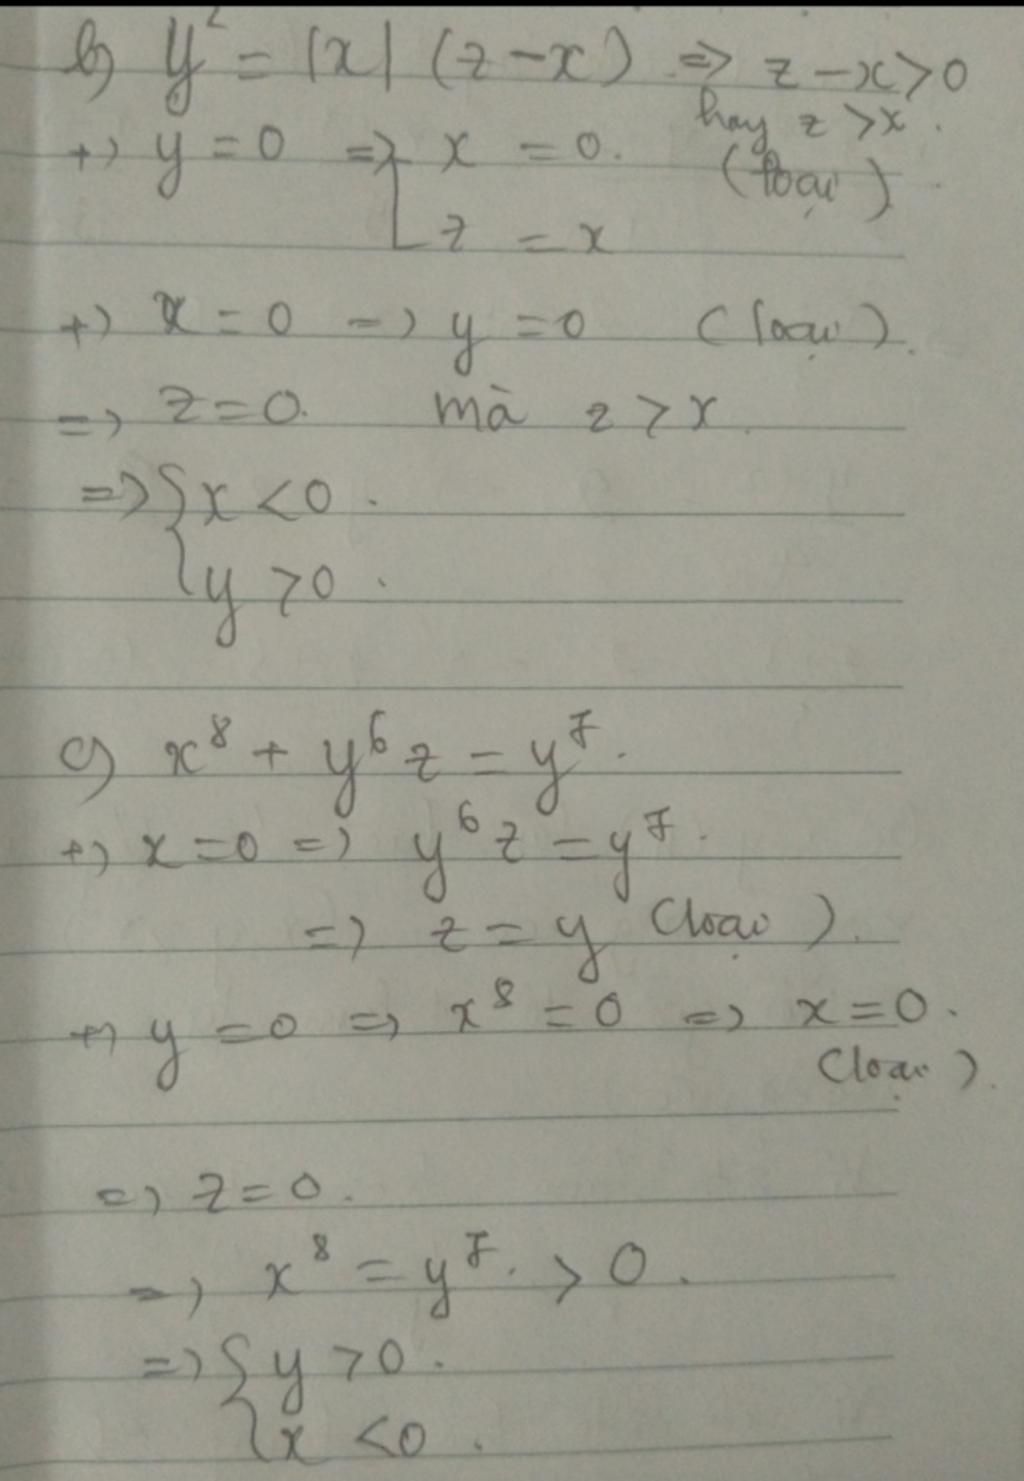 b) y² = |x| (z - x) => z - x > 0
hay z > x.
+) y = 0 => [ x = 0. (loại)
z = x
+) x = 0 -> y = 0 (loại).
=> z = 0. mà z > x.
=> { x < 0.
y > 0.
c) x⁸ + y⁶z = y⁷.
+) x = 0 => y⁶z = y⁷.
=> z = y (loại).
+) y = 0 => x⁸ = 0 => x = 0.
(loại).
=> z = 0.
=> x⁸ = y⁷. > 0.
=> { y > 0.
x < 0.